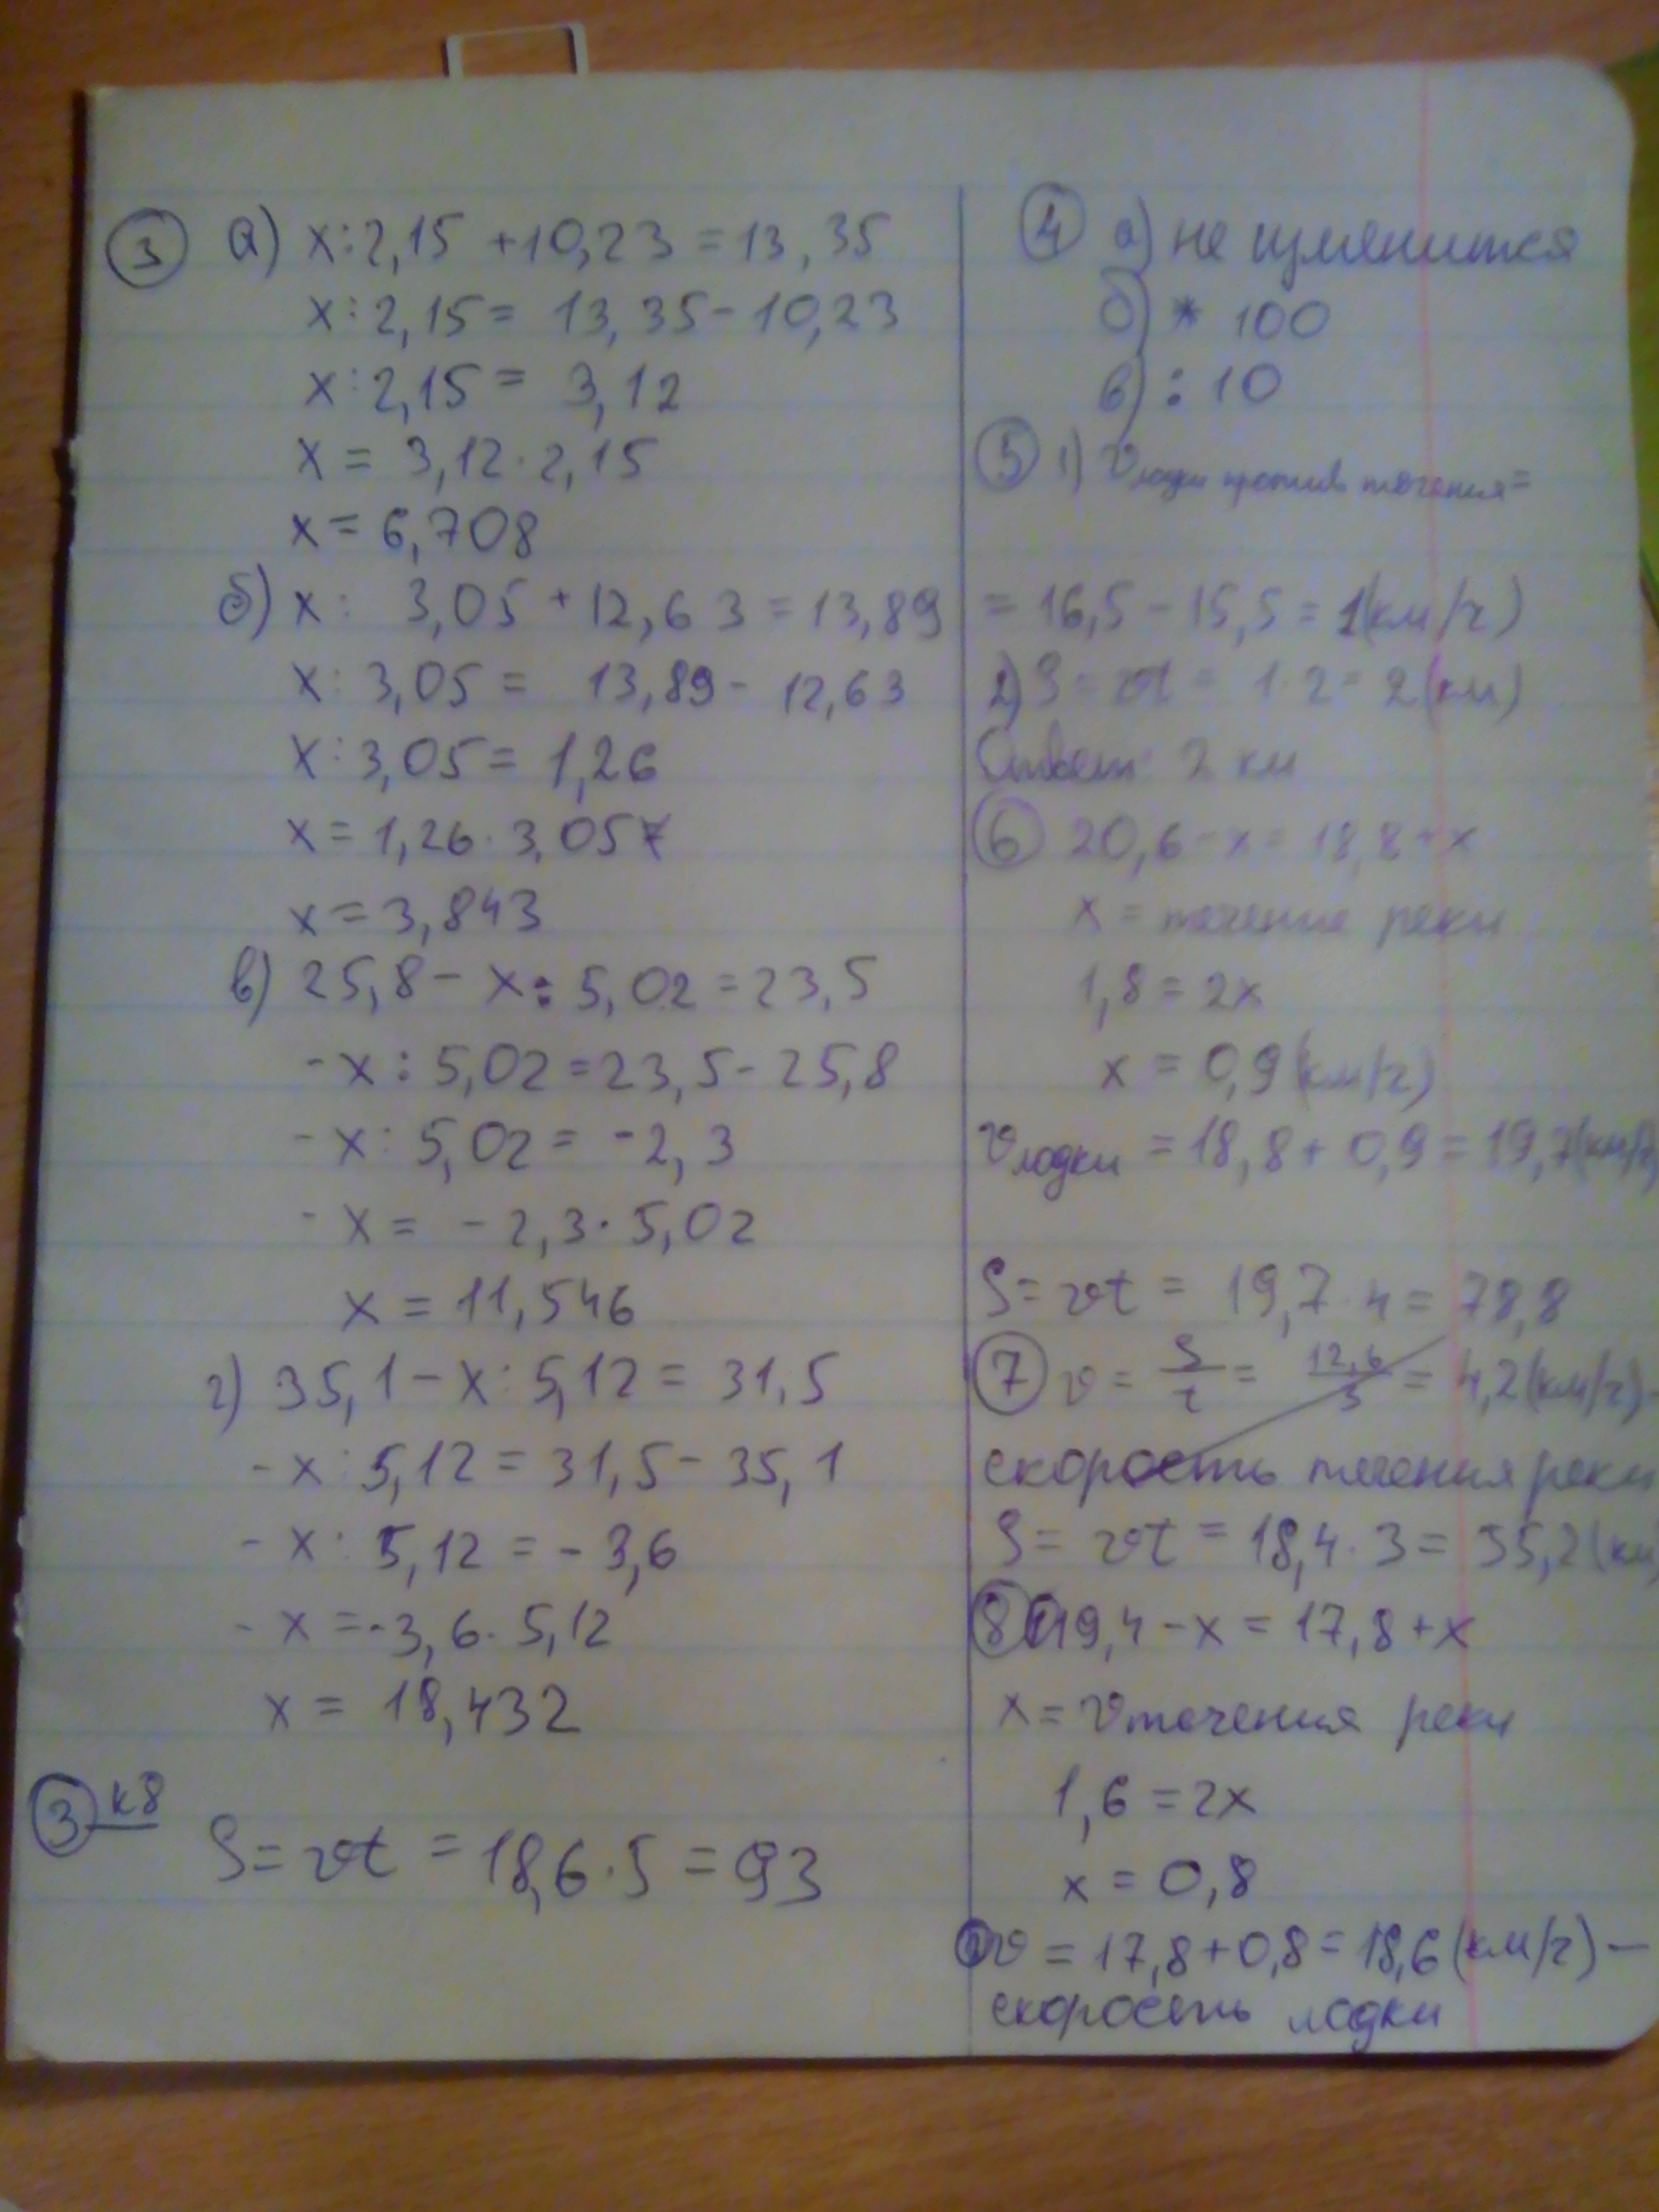 3 а) x:2,15 +10,23 = 13,35
x:2,15 = 13,35 - 10,23
x:2,15 = 3,12
x = 3,12 · 2,15
x = 6,708
б) x: 3,05 + 12,63 = 13,89
x: 3,05 = 13,89 - 12,63
x:3,05 = 1,26
x = 1,26 · 3,05
x = 3,843
в) 25,8 - x : 5,02 = 23,5
- x : 5,02 = 23,5 - 25,8
- x : 5,02 = -2,3
- x = - 2,3 · 5,02
x = 11,546
г) 35,1 - x : 5,12 = 31,5
- x : 5,12 = 31,5 - 35,1
- x : 5,12 = - 3,6
- x = -3,6 · 5,12
x = 18,432
3 к8
S = vt = 18,6 · 5 = 93
4 а) не изменится
б) * 100
в) : 10
5 1) Vлодки против течения =
= 16,5 - 15,5 = 1 (км/ч)
2) S = vt = 1 · 2 = 2 (км)
Ответ: 2 км
6 20,6 - x = 18,8 + x
x = течение реки
1,8 = 2x
x = 0,9 (км/ч)
Vлодки = 18,8 + 0,9 = 19,7 (км/ч)
S = vt = 19,7 · 4 = 78,8
7 v = S/t = 12,6/3 = 4,2 (км/ч) -
скорость течения реки
S = vt = 18,4 · 3 = 55,2 (км
8 19,4 - x = 17,8 + x
x = Vтечения реки
1,6 = 2x
x = 0,8
v = 17,8 + 0,8 = 18,6 (км/ч) —
скорость лодки